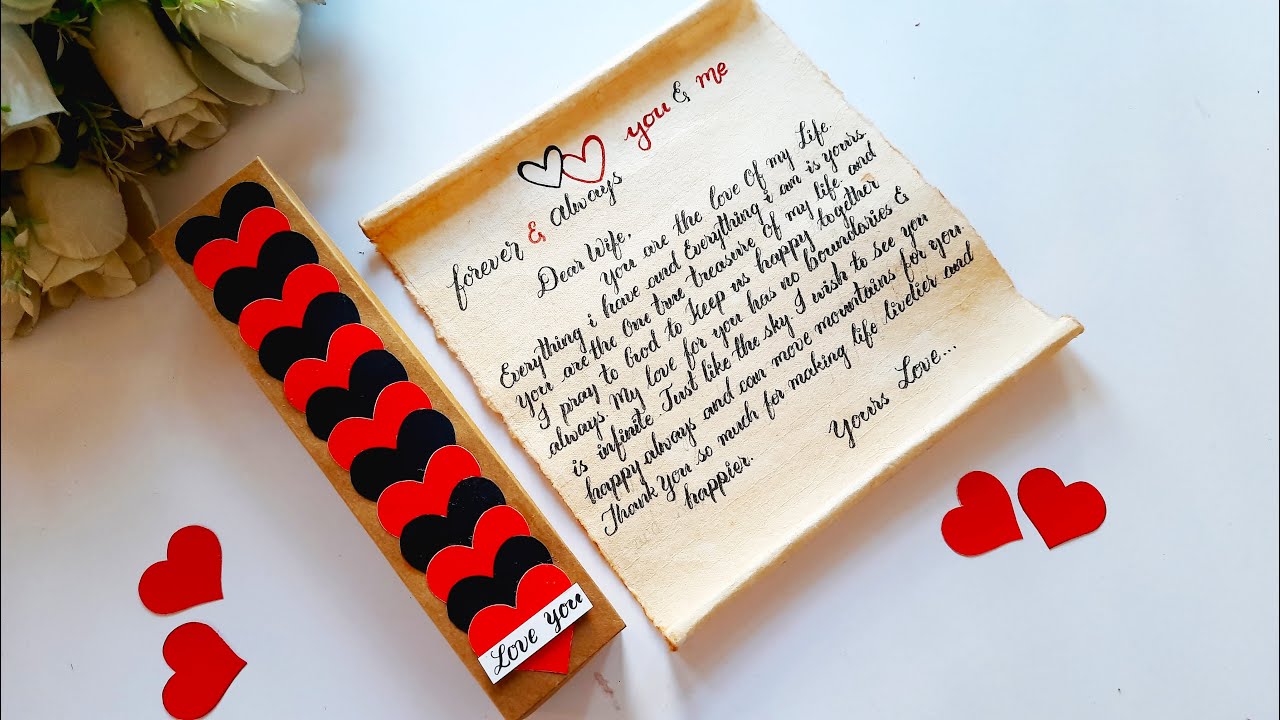 you & me
forever & always
Dear Wife,
You are the love Of my Life.
Everything i have and Everything i am is yours.
You are the One true treasure of my life. and
I pray to God to Keep us happy together
always. My love for you has no boundaries &
is infinite. Just like the sky. I wish to see you
happy always and can move mountains for you.
Thank You so much for making life livelier and
happier.
Yours Love...
Love You